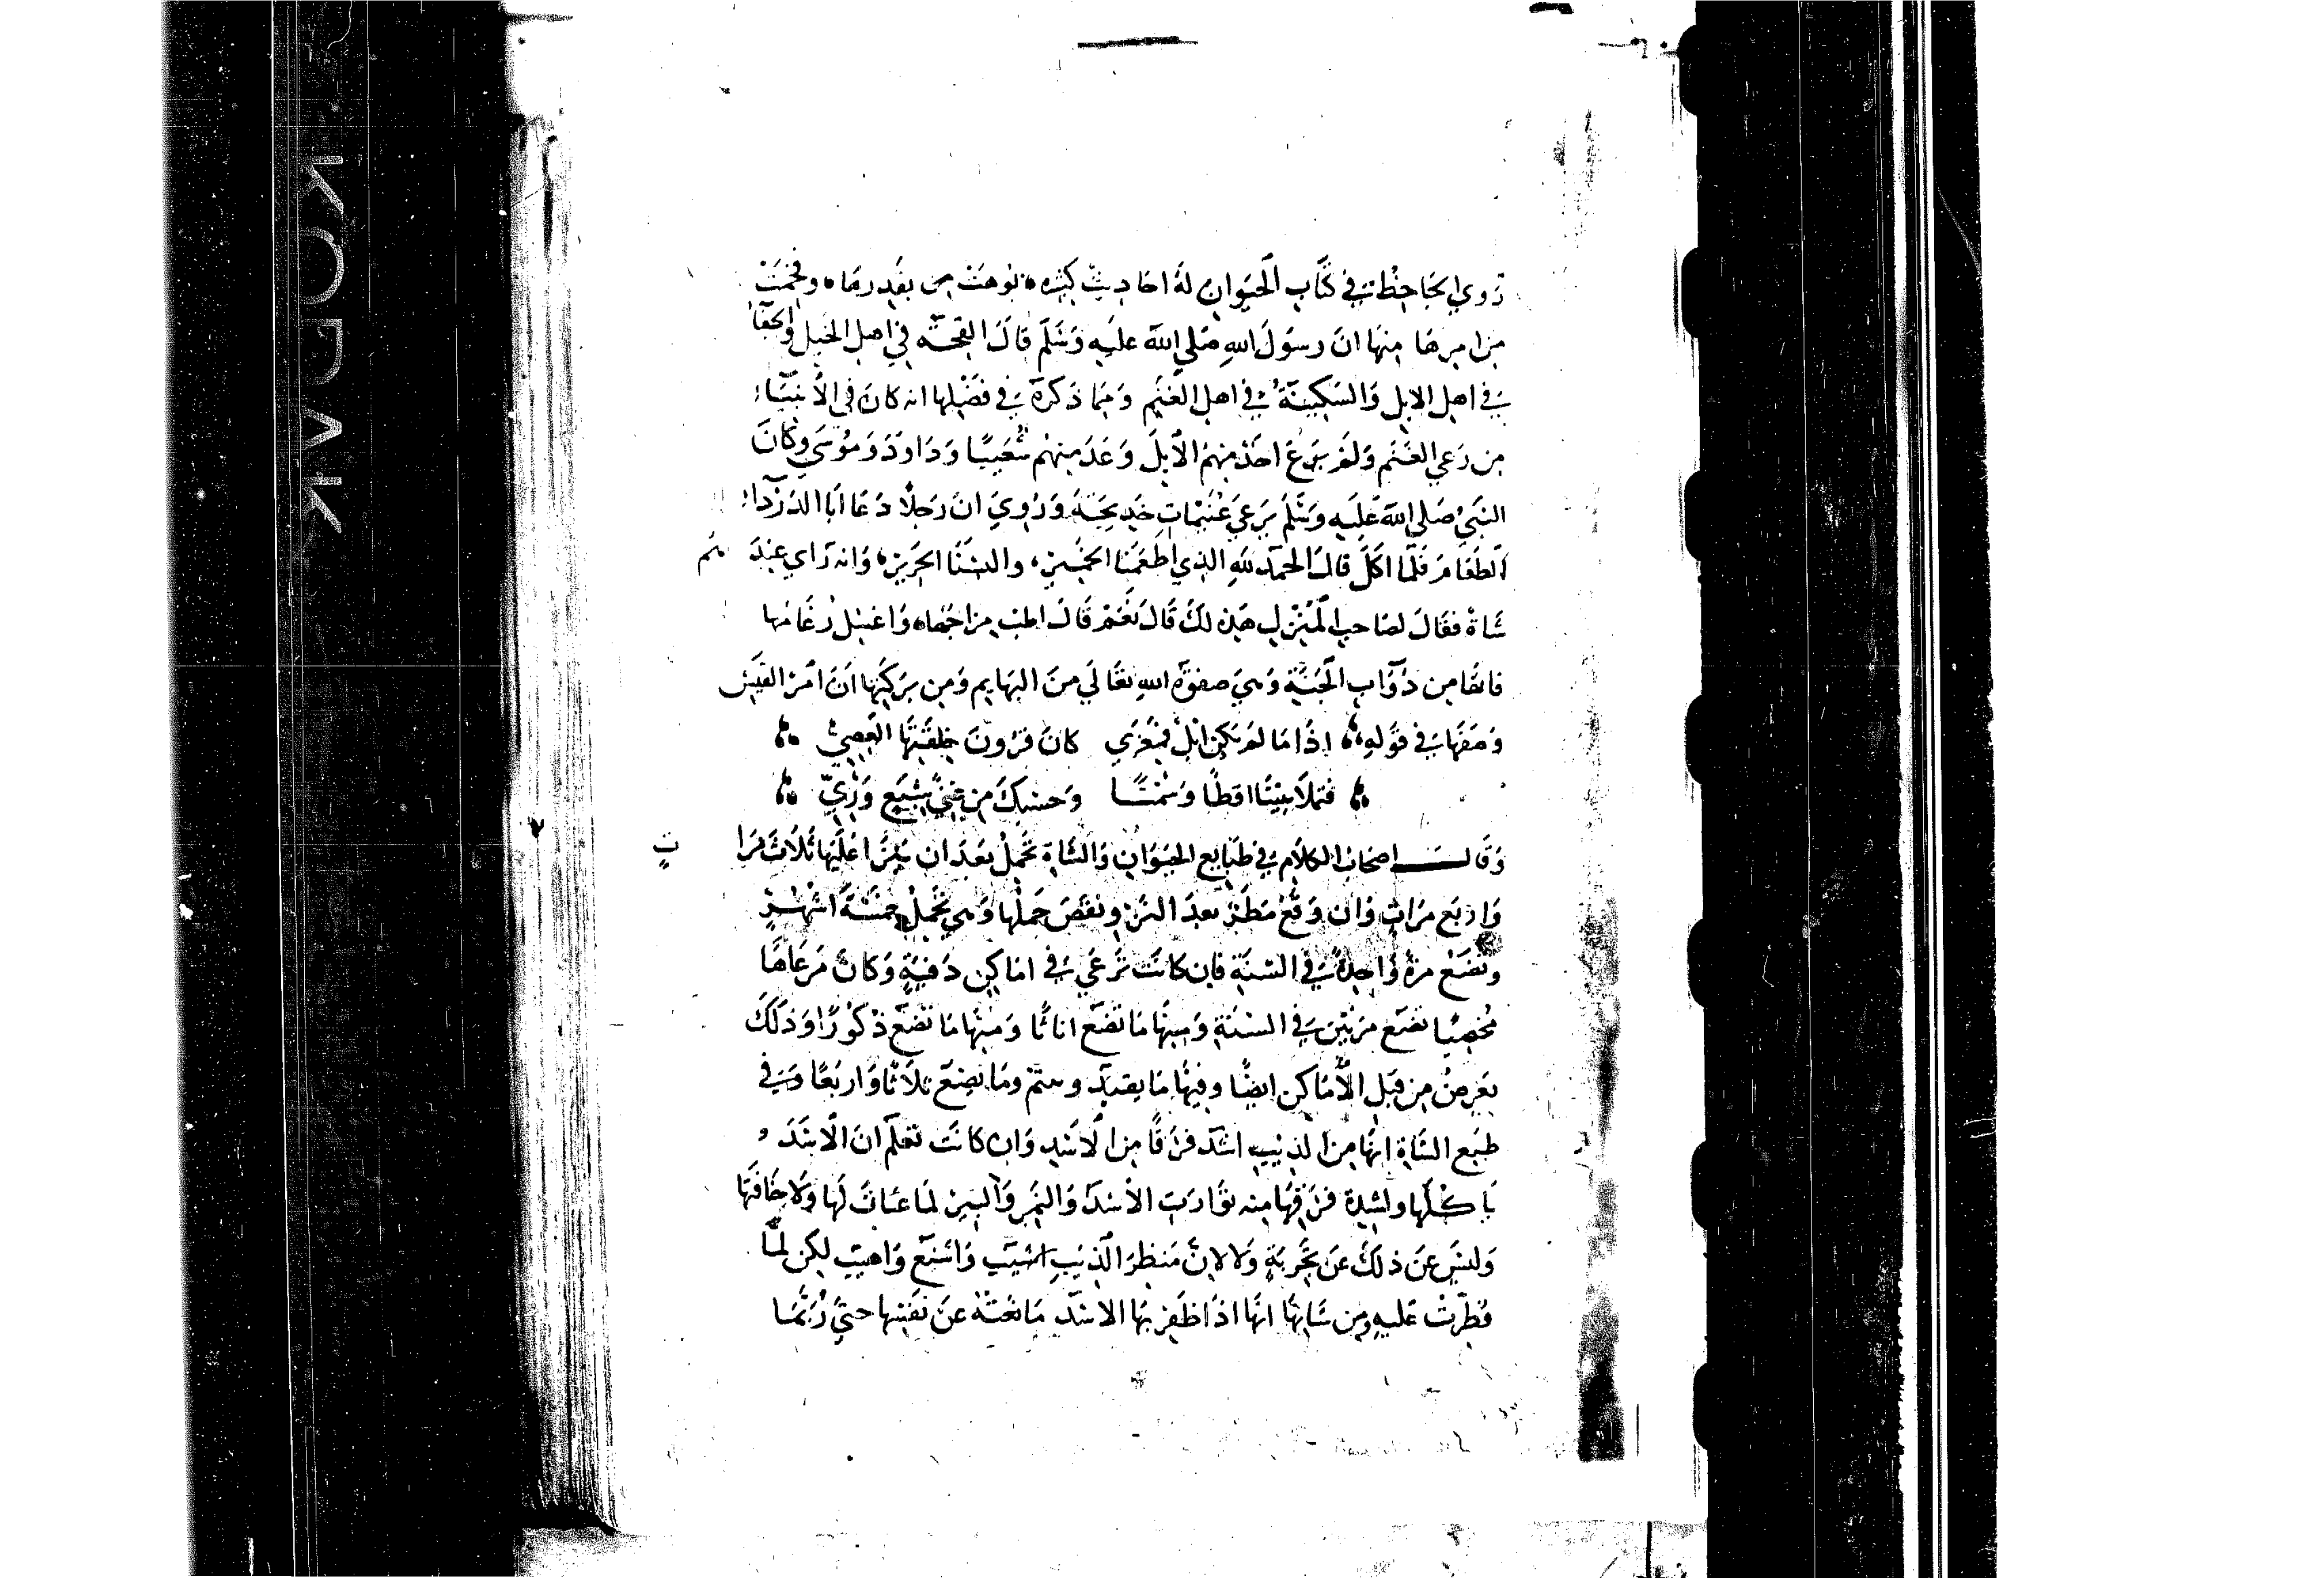 رَوي الجَاحِظ في كتَاب الحَيَوان لهَ احَاديثَ كثيره نوهَتْ مِن بقَدرهَا، وفخمَتْ
مِن امرِهَا مِنهَا انَ رسوُلَ اللهِ صَلي اللهَ عليَهِ وَسَلَّم قالَ القِحَة في اهل الخَيل والجفَا
في اهِل الابِل وَالسَكينَةُ في اهل الغنَم وَممَا ذكرَهَ في فضْلِها انه كانَ في الأنبيَاءِ
مِن رَعي الغَنَم وَلمَ يَرعَ احَدْ مِنهمُ الاَبِلَ وَعَدَ مِنهُم شُعَيبًا وَدَاودَ وَمُوسَي وكانَ
النَبيُ صَلي الله عَليَهِ وَسَلَم يَرعَي غُنَيمَاتِ خَدِيجَةَ وَرُويَ انَ رَجلًا دَعَا اَبا الدَرْدَاءِ
الَطعَام فَلمَا اكَلَ قالَ الحَمدَ للهِ الذِي اطعَمنَا الخَميز، والبسَنَا الحَرِيز، وَانه رَاي عِندَهم
شَاة فقَالَ لصَاحِبِ المَنْزِل هَذِه لكَ قَالَ نَعَم قَالَ اطب مِراحَهَا، وَاغسِل رُغَامهَا
فانهَا مِن دَوَابِ الجَنَّةِ وَهيَ صفوَة اللهِ تعَالَي مِنَ البهَايِم وَمِن بَركتِهَا اَنَ امرَ القَيسِ
وَصَفَهَا في قوَلِهِ اذَا مَا لمَ تكنِ ابلٌ فمِعْزَي كانَ قرُونَ جِلتَهَا العِصِيُ
فتملَا بَيتَنَا اقِطًا وَسَمْنًا وَحسبكَ مِن غِنيً شِبَعٍ وَرِيّ
وَقالَ اصحَابُ الكلَام في طبَايِع الحَيَوَانِ وَالشَاة تَحَمِلُ بعَدَ ان يَنزُا عَلَيهَا ثَلَاثَ مَرَاتٍ
وَاربَع مرَاتٍ وَان وَقعَ مَطَرٌ بَعدَ النزو نقَصَ حَملُها وَهي تَحمِلُ خمسَةَ اشهُرٍ
وتَضَعْ مرةً وَاحِدةً في السَنةِ فاِن كانَت تَرعَي في امَاكِن دَفِيَةٍ وَكانَ مَرعَاهَا
مُخصِبًا تضَع مَرتَينَ في السَنَةِ وَمِنهَا مَا تَضَع انَاثًا وَمِنهَا مَا تضعَ ذكوُرًا وَذَلكَ
يَعرِضُ مِن قِبَلِ الأَمَاكن ايضًا وفِيهَا مَا يضَعُ ثَلاَثًا وَاربَعًا وَفي
طبَع الشَاةِ انهَا مِنَ الذيِبِ اشَد فَرَقًا مِنَ الاَسَدِ وَان كانَت تعَلَم انَ الاسَدَ
يَاكُلهَا ولِشِدة فَرَقِهَا مِنه لوَ ارَت الاسَدَ وَالنمِر وَالبَبر لمَا عَبات لَها وَلا خَافَتهَا
وَليسَ عنَ ذلكَ عنَ تَجرِبَةٍ وَلا لانَ مَنظرَ الذيِبِ اشيَب وَاشنَع وَاهيَب لكِن لمَّا
فُطِرَتْ عَليهِ ومِن شَانِهَا انهَا اذَا ظَفرَ بهَا الاسَد مَانعَتْه عنَ نفَسِها حتيَ رُبَّمَا